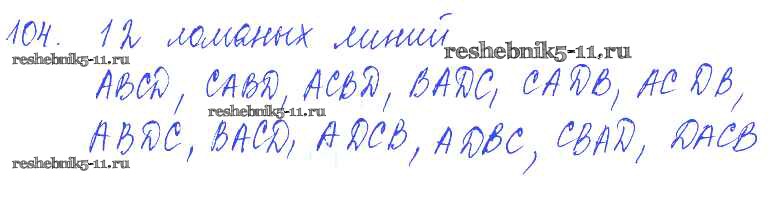 104. 12 ломаных линий
reshebnik5-11.ru
reshebnik5-11.ru
ABCD, CABD, ACBD, BADC, CADB, ACDB,
reshebnik5-11.ru
ABDC, BACD, ADCB, ADBC, CBAD, DACB
reshebnik5-11.ru